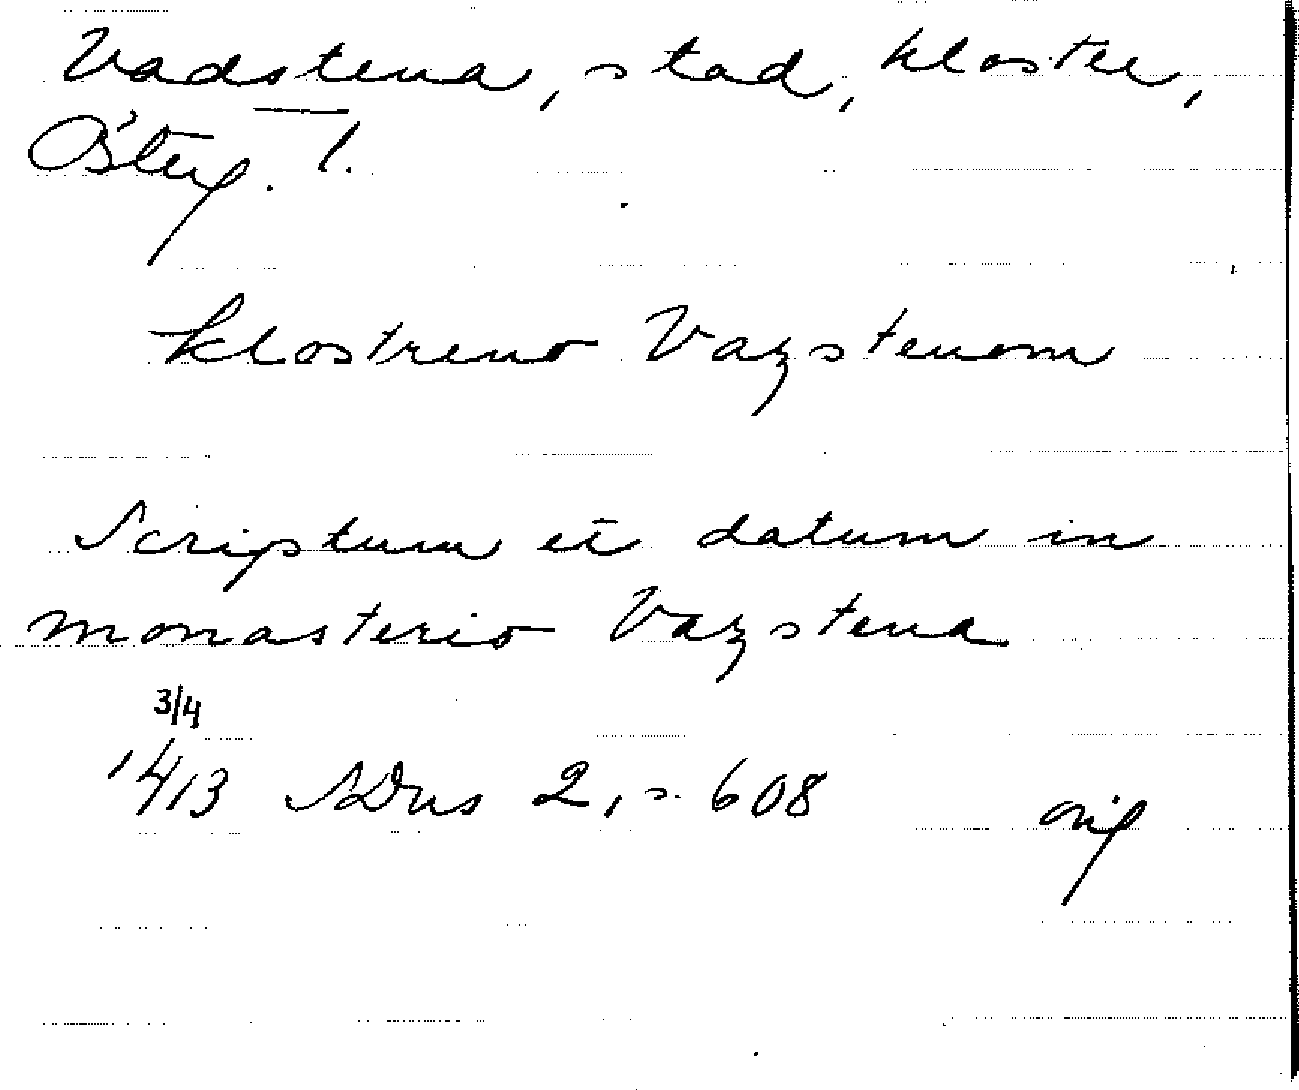 Vadstena, stad, kloster,
Österg. l.
klostreno Vazstenom
Scriptum et datum in
monasterio Vazstena
3/4
1413 SDns 2, s. 608 orig